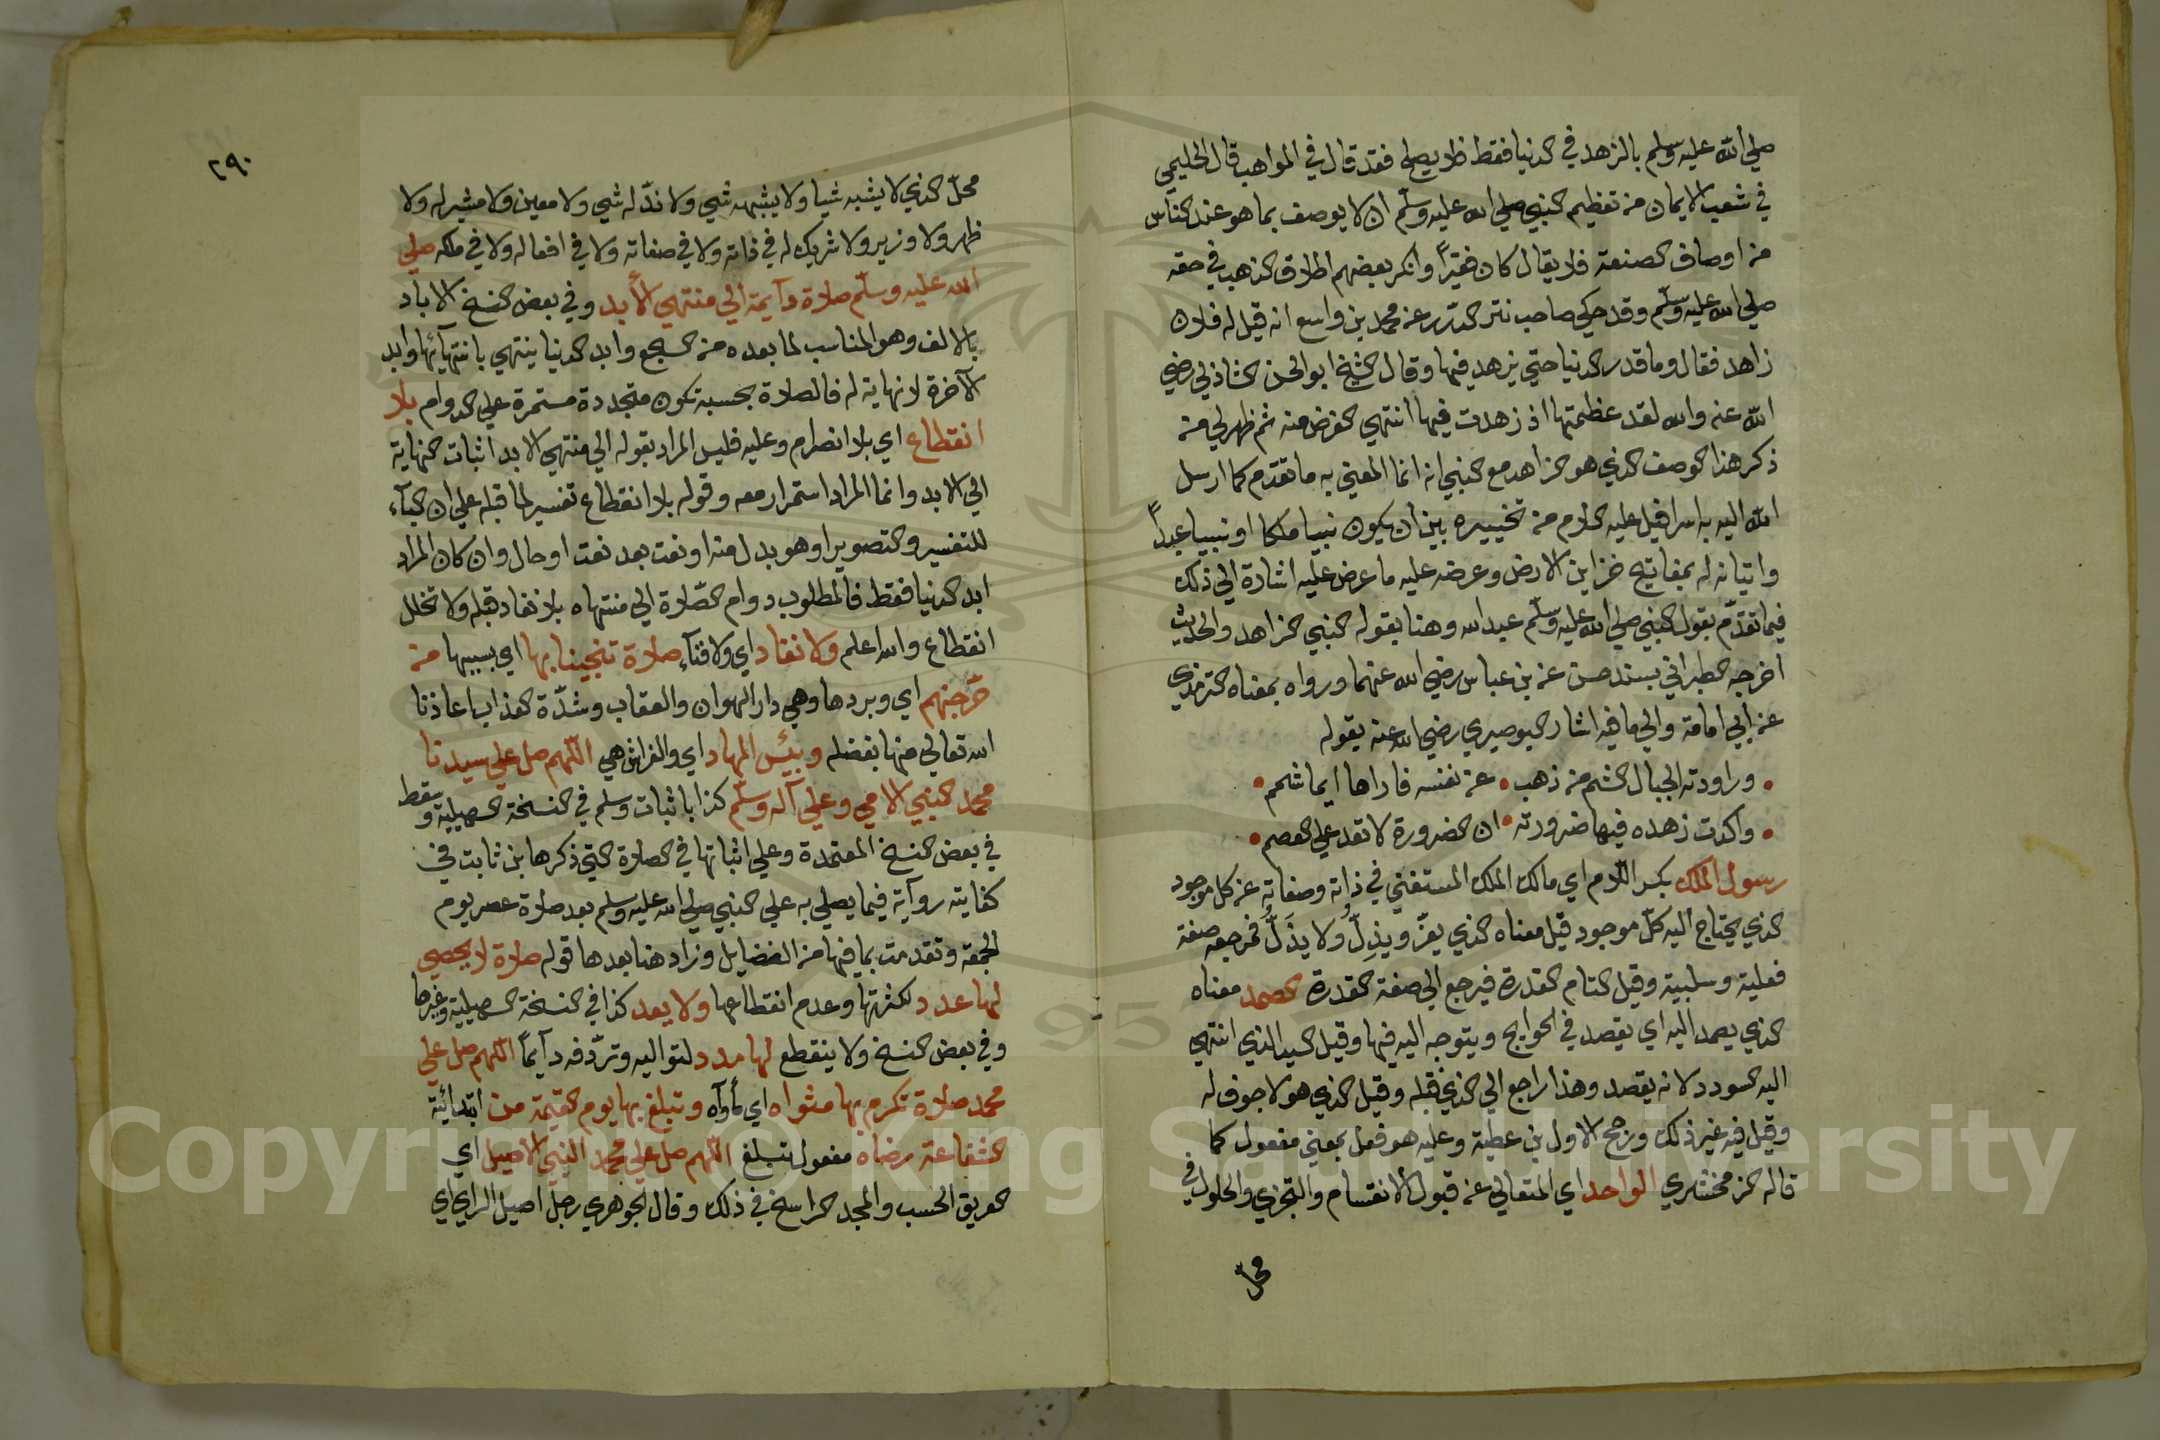 صلي الله عليه وسلم بالزهد في الدنيا فقط فلا يصلح فقد قال في المواهب قال الحليمي
في شعب الايمان من تعظيم النبي صلي الله عليه وسلم ان لا يوصف بما هو عند الناس
من اوصاف الصنعة فلا يقال كان فقيرًا وانكر بعضهم اطلاق الزهد في حقه
صلي الله عليه وسلم وقد حكي صاحب نثر الدر عن محمد بن واسع انه قيل له فلان
زاهد فقال وما قدر الدنيا حتي يزهد فيها وقال الشيخ ابو الحسن الشاذلي رضي
الله عنه والله لقد عظمتها اذ زهدت فيها انتهي الغرض منه ثم ظهر لي من
ذكر هذا الوصف الذي هو الزاهد مع النبي انه انما المعني به ما تقدم كما ارسل
الله اليه به اسرافيل عليه السلام من تخييره بين ان يكون نبيا ملكا او نبيا عبدًا
واتيانه له بمفاتيح خزاين الارض وعرضه عليه ما عرض عليه اشارة الي ذلك
فيما تقدّم بقول النبي صلي الله عليه وسلم عبد الله وهنا بقوله النبي الزاهد والحديث
اخرجه الطبراني بسند حسن عن بن عباس رضي الله عنهما ورواه بمعناه الترمذي
عن أبي امامة والي ما فيه اشار البوصيري رضي الله عنه بقوله
وراودته الجبال الشم من ذهب • عن نفسه فاراها ايما شمم •
واكدت زهده فيها ضرورته • ان الضرورة لا تعد علي العصم •
رسول الملك بكسر اللام اي مالك الملك المستغني في ذاته وصفاته عن كل موجود
الذي يحتاج اليه كل موجود قيل معناه الذي يعزّ ويذِلّ ولا يذَلّ فمرجعه صفة
فعلية وسلبية وقيل التام القدرة فيرجع الي صفة القدرة الصمد معناه
الذي يصمد اليه اي يقصد في الحوايج ويتوجه اليه فيها وقيل السيد الذي انتهي
اليه السودد لانه يقصد وهذا راجع الي الذي قبله وقيل الذي هو لا جوف له
وقيل فيه غير ذلك ورجح الاول بن عطية وعليه هو فعل بمعني مفعول كما
قاله الزمخشري الواحد اي المتعالي عن قبول الانقسام والتجزي والحلول في
محلّ
٢٩٠
محلّ الذي لا يشبه شيا ولا يشبهه شي ولا ندّ له شي ولا معين ولا مشير له ولا
ظهر ولا وزير ولا شريك له في ذاته ولا في صفاته ولا في افعاله ولا في ملكه صلي
الله عليه وسلّم صلاة دآيمة الي منتهي الأبد وفي بعض النسخ الاباد
بالالف وهو المناسب لما بعده من السجع وابد الدنيا ينتهي بانتهآئها وابد
الآخرة لا نهاية له فالصلاة بحسبه تكون متجددة مستمرة علي الدوام بلا
انقطاع اي بلا انصرام وعليه فليس المراد بقوله الي منتهي الابد اثبات النهاية
الي الابد وانما المراد استمرار معه وقوله بلا انقطاع تفسير لما قبله علي ان البآء
للتفسير والتصوير او هو بدل منه او نعت بعد نعت او حال وان كان المراد
ابد الدنيا فقط فالمطلوب دوام الصّلاة الي منتهاه بلا نفاد قبله ولا تخلل
انقطاع والله اعلم ولا نفاد اي ولا فنآء صلاة تنجينا بها اي بسببها من
حَرّ جهنم اي وبردها وهي دار الهوان والعقاب وشدّة العذاب اعاذنا
الله تعالي منها بفضله وبئس المهاد اي والفراش هي اللّهم صل علي سيدنا
محمد النبي الامي وعلي آله وسلّم كذا باثبات وسلم في النسخة السهيلية وسقط
في بعض النسخ المعتمدة وعلي اثباتها في الصلاة التي ذكرها بن ثابت في
كفايته روآية فيما يصلي به علي النبي صلي الله عليه وسلم بعد صلاة عصر يوم
الجمعة وتقدمت بما فيها من الفضايل وزاد هنا بعدها قوله صلاة لا يحصي
لها عدد لكثرتها وعدم انقطاعها ولا يعد كذا في النسخة السهيلية وغيرها
وفي بعض النسخ ولا ينقطع لها مدد لتواليه وترّدفه دآيماً اللّهم صل علي
محمد صلاة تكرم بها مثواه اي مأواه وتبلغ بها يوم القيمة من ابتدائية
الشفاعة رضاه مفعول تبلغ اللّهم صل علي محمد النبي الاصيل اي
العريق الحسب والمجد الراسخ في ذلك وقال الجوهري رجل اصيل الراي اي